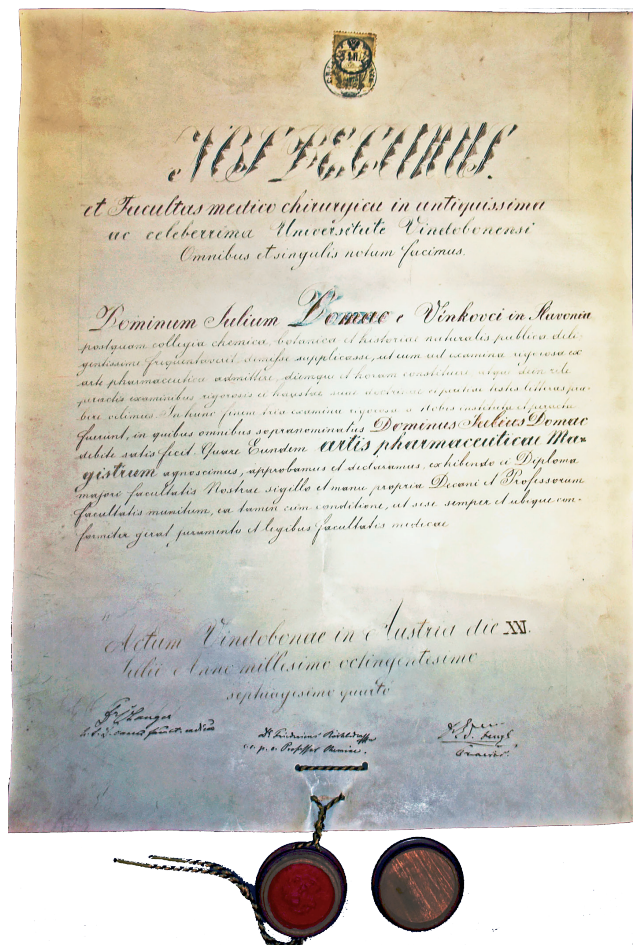 NOS DECANUS
et Facultas medico chirurgica in antiquissima
ac celeberrima Universitate Vindobonensi
Omnibus et singulis notum facimus.
Dominum Julium Domac e Vinkovci in Slavonia
postquam collegia chemica, botanica et historiae naturalis publica dili-
gentissime frequentaverit, demisse supplicasse, ut eum ad examina rigorosa ex
arte pharmaceutica admittere, diemque et horam constituere, atque dein rite
peractis examinibus rigorosis et haustae suae doctrinae et peritiae testes litteras prae-
bere velimus. In hunc finem tria examina rigorosa a Nobis instituta et peracta
fuerunt, in quibus omnibus supranominatus Dominus Julius Domac
debite satis fecit. Quare Eundem artis pharmaceuticae Ma-
gistrum agnoscimus, approbamus et declaramus, exhibendo ei Diploma
majore facultatis Nostrae sigillo et manu propria Decani et Professorum
facultatis munitum, ea tamen cum conditione, ut sese semper et ubique con-
formiter gerat juramento et legibus facultatis medicae
Actum Vindobonae in Austria die XV.
Julii Anno millesimo octingentesimo
septuagesimo quarto
Dr Langer
Dr
Professor Chemiae.
Dr